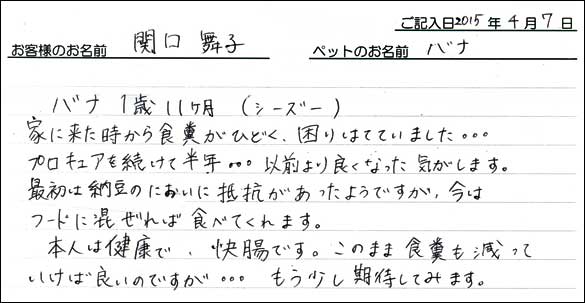 ご記入日2015年4月7日
お客様のお名前 関口 舞子 ペットのお名前 バナ
バナ 1歳11ヶ月 (シーズー)
家に来た時から食糞がひどく、困りはてていました・・・
プロキュアを続けて半年・・・以前より良くなった気がします。
最初は納豆のにおいに抵抗があったようですが、今は
フードに混ぜれば食べてくれます。
本人は健康で、快腸です。このまま食糞も減って
いけば良いのですが・・・ もう少し期待してみます。